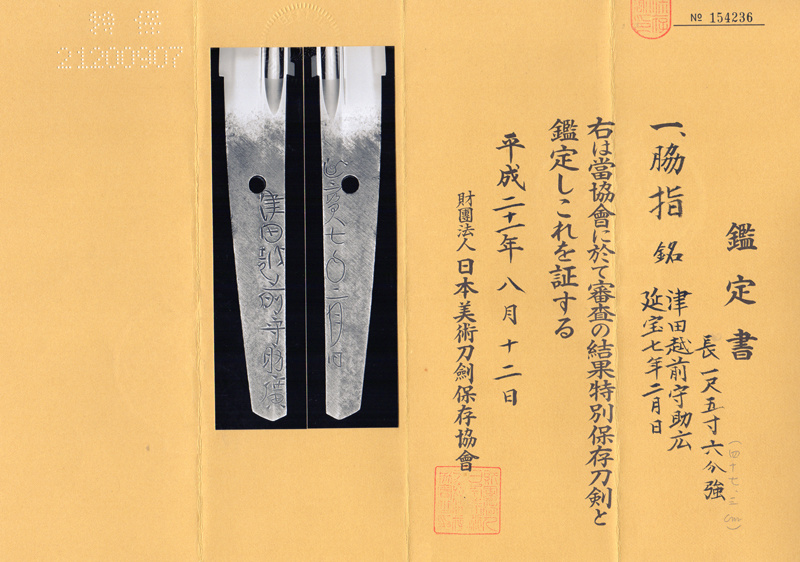 № 154236
鑑定書
一、脇指 銘 津田越前守助広
延宝七年二月日
長一尺五寸六分強
(四十七・三cm)
右は當協會に於て審査の結果特別保存刀剣と
鑑定しこれを証する
平成二十一年八月十二日
財團法人 日本美術刀劍保存協會
21200907
津田越前守助廣
延寳七年二月日